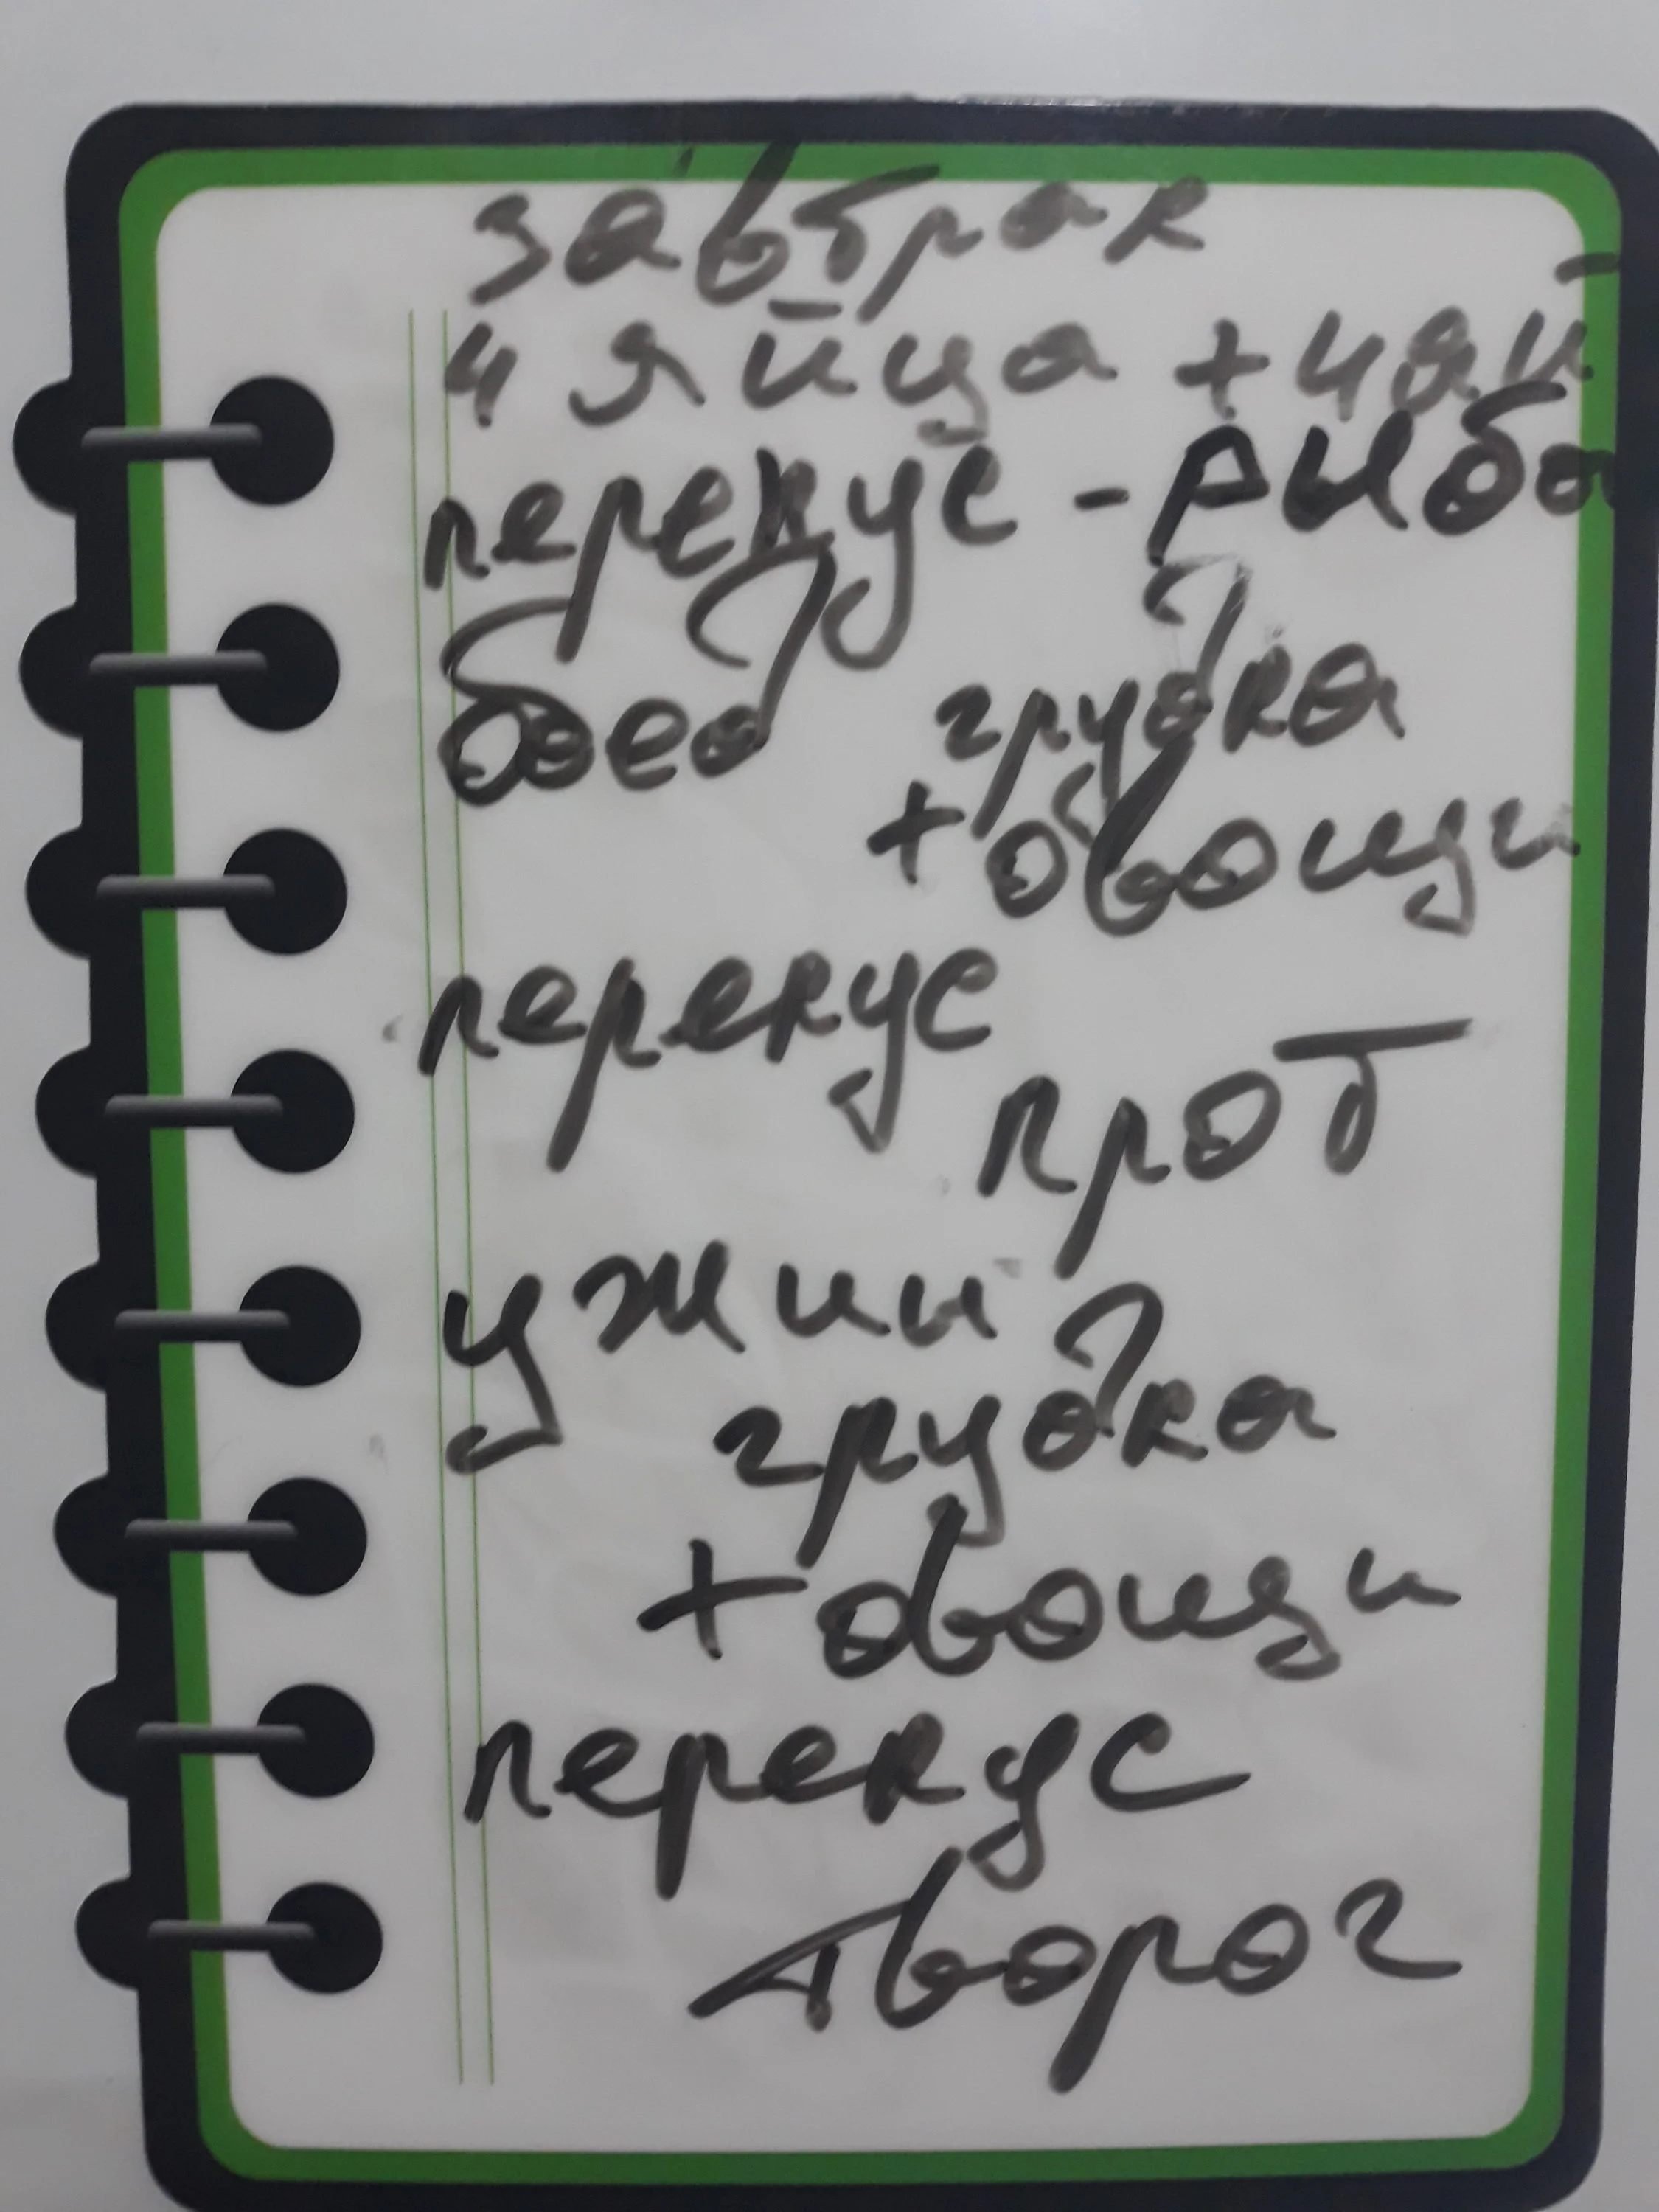 завтрак
4 яйца + чай
перекус - рыба
обед грудка
+ овощи
перекус
прот
ужин
грудка
+ овощи
перекус
творог